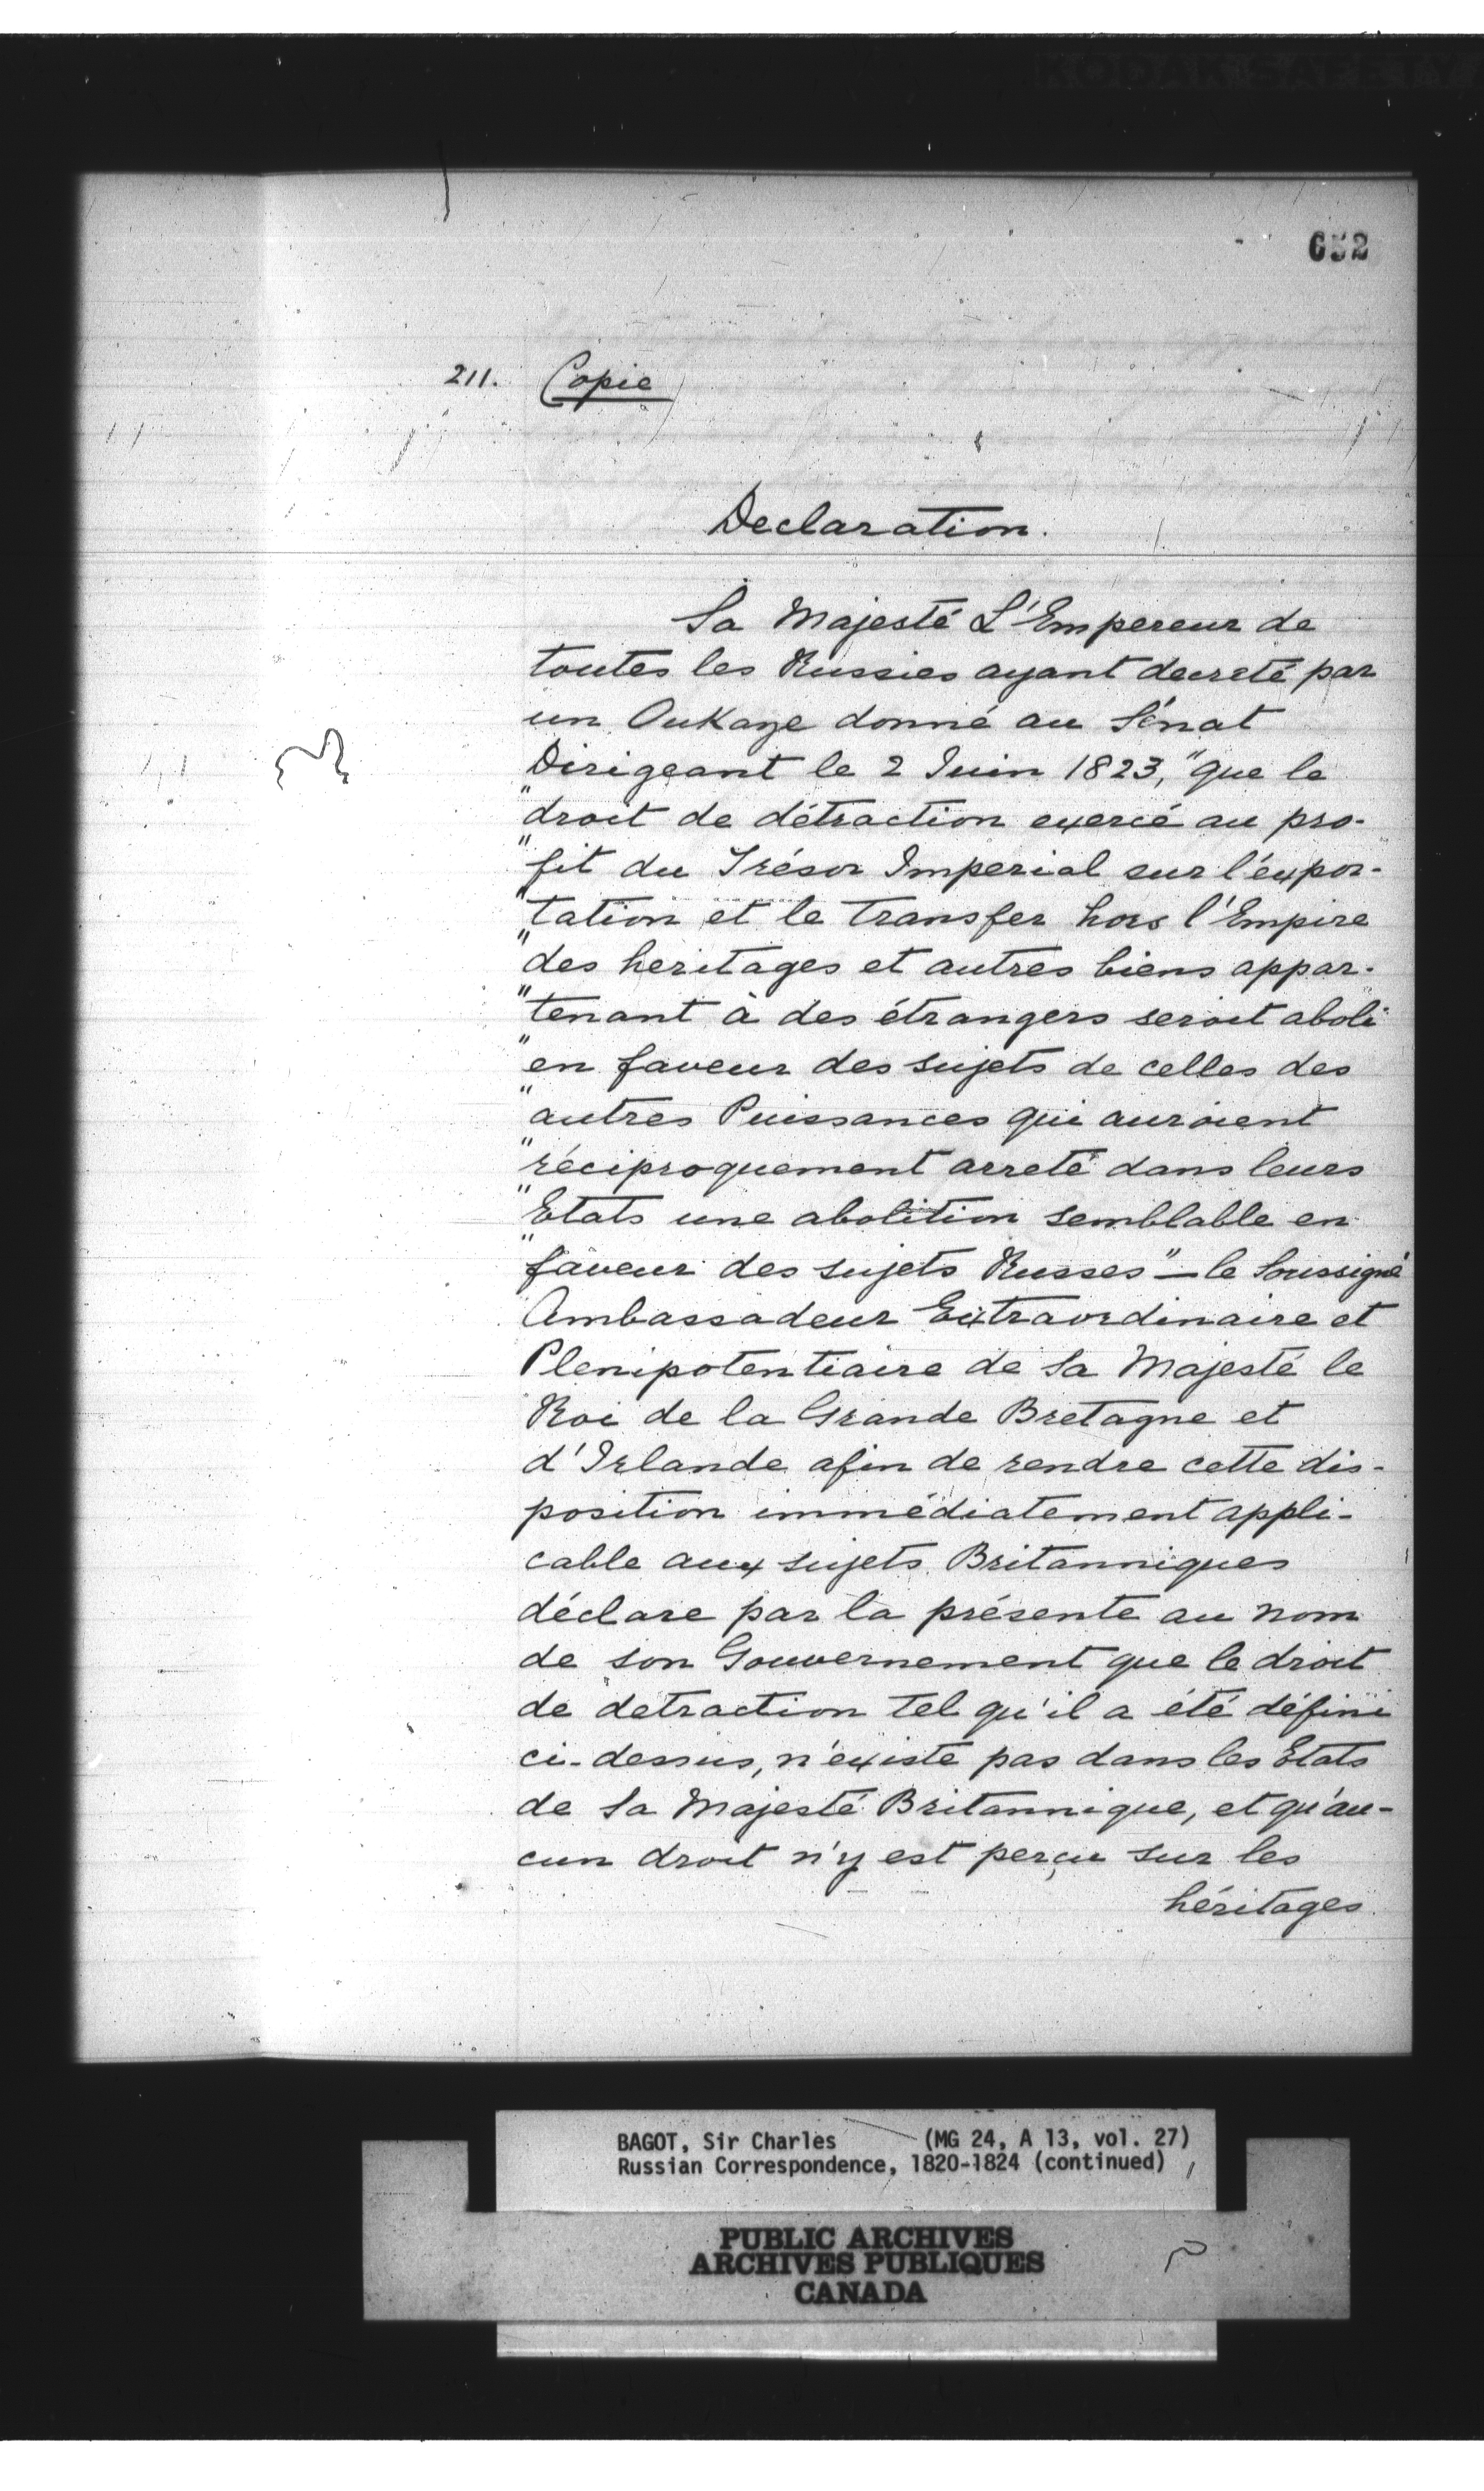 652
211. Copie
Declaration.
Sa Majesté L'Empereur de
toutes les Russies ayant decreté par
un Oukaze donné au Sénat
Dirigeant le 2 Juin 1823, "que le
"droit de détraction exercé au pro-
"fit du Trésor Imperial sur l'expor-
"tation et le transfer hors l'Empire
"des heritages et autres biens appar-
"tenant à des étrangers seroit aboli
"en faveur des sujets de celles des
"autres Puissances qui auroient
"réciproquement arreté dans leurs
"Etats une abolition semblable en
"faveur des sujets Russes" — le Soussigné
Ambassadeur Extraordinaire et
Plenipotentiaire de Sa Majesté le
Roi de la Grande Bretagne et
d'Irlande afin de rendre cette dis-
position immédiatement appli-
cable aux sujets Britanniques
déclare par la présente au nom
de son Gouvernement que le droit
de detraction tel qu'il a été défini
ci-dessus, n'existe pas dans les Etats
de Sa Majesté Britannique, et qu'au-
cun droit n'y est perçu sur les
héritages
BAGOT, Sir Charles (MG 24, A 13, vol. 27)
Russian Correspondence, 1820-1824 (continued)
PUBLIC ARCHIVES
ARCHIVES PUBLIQUES
CANADA